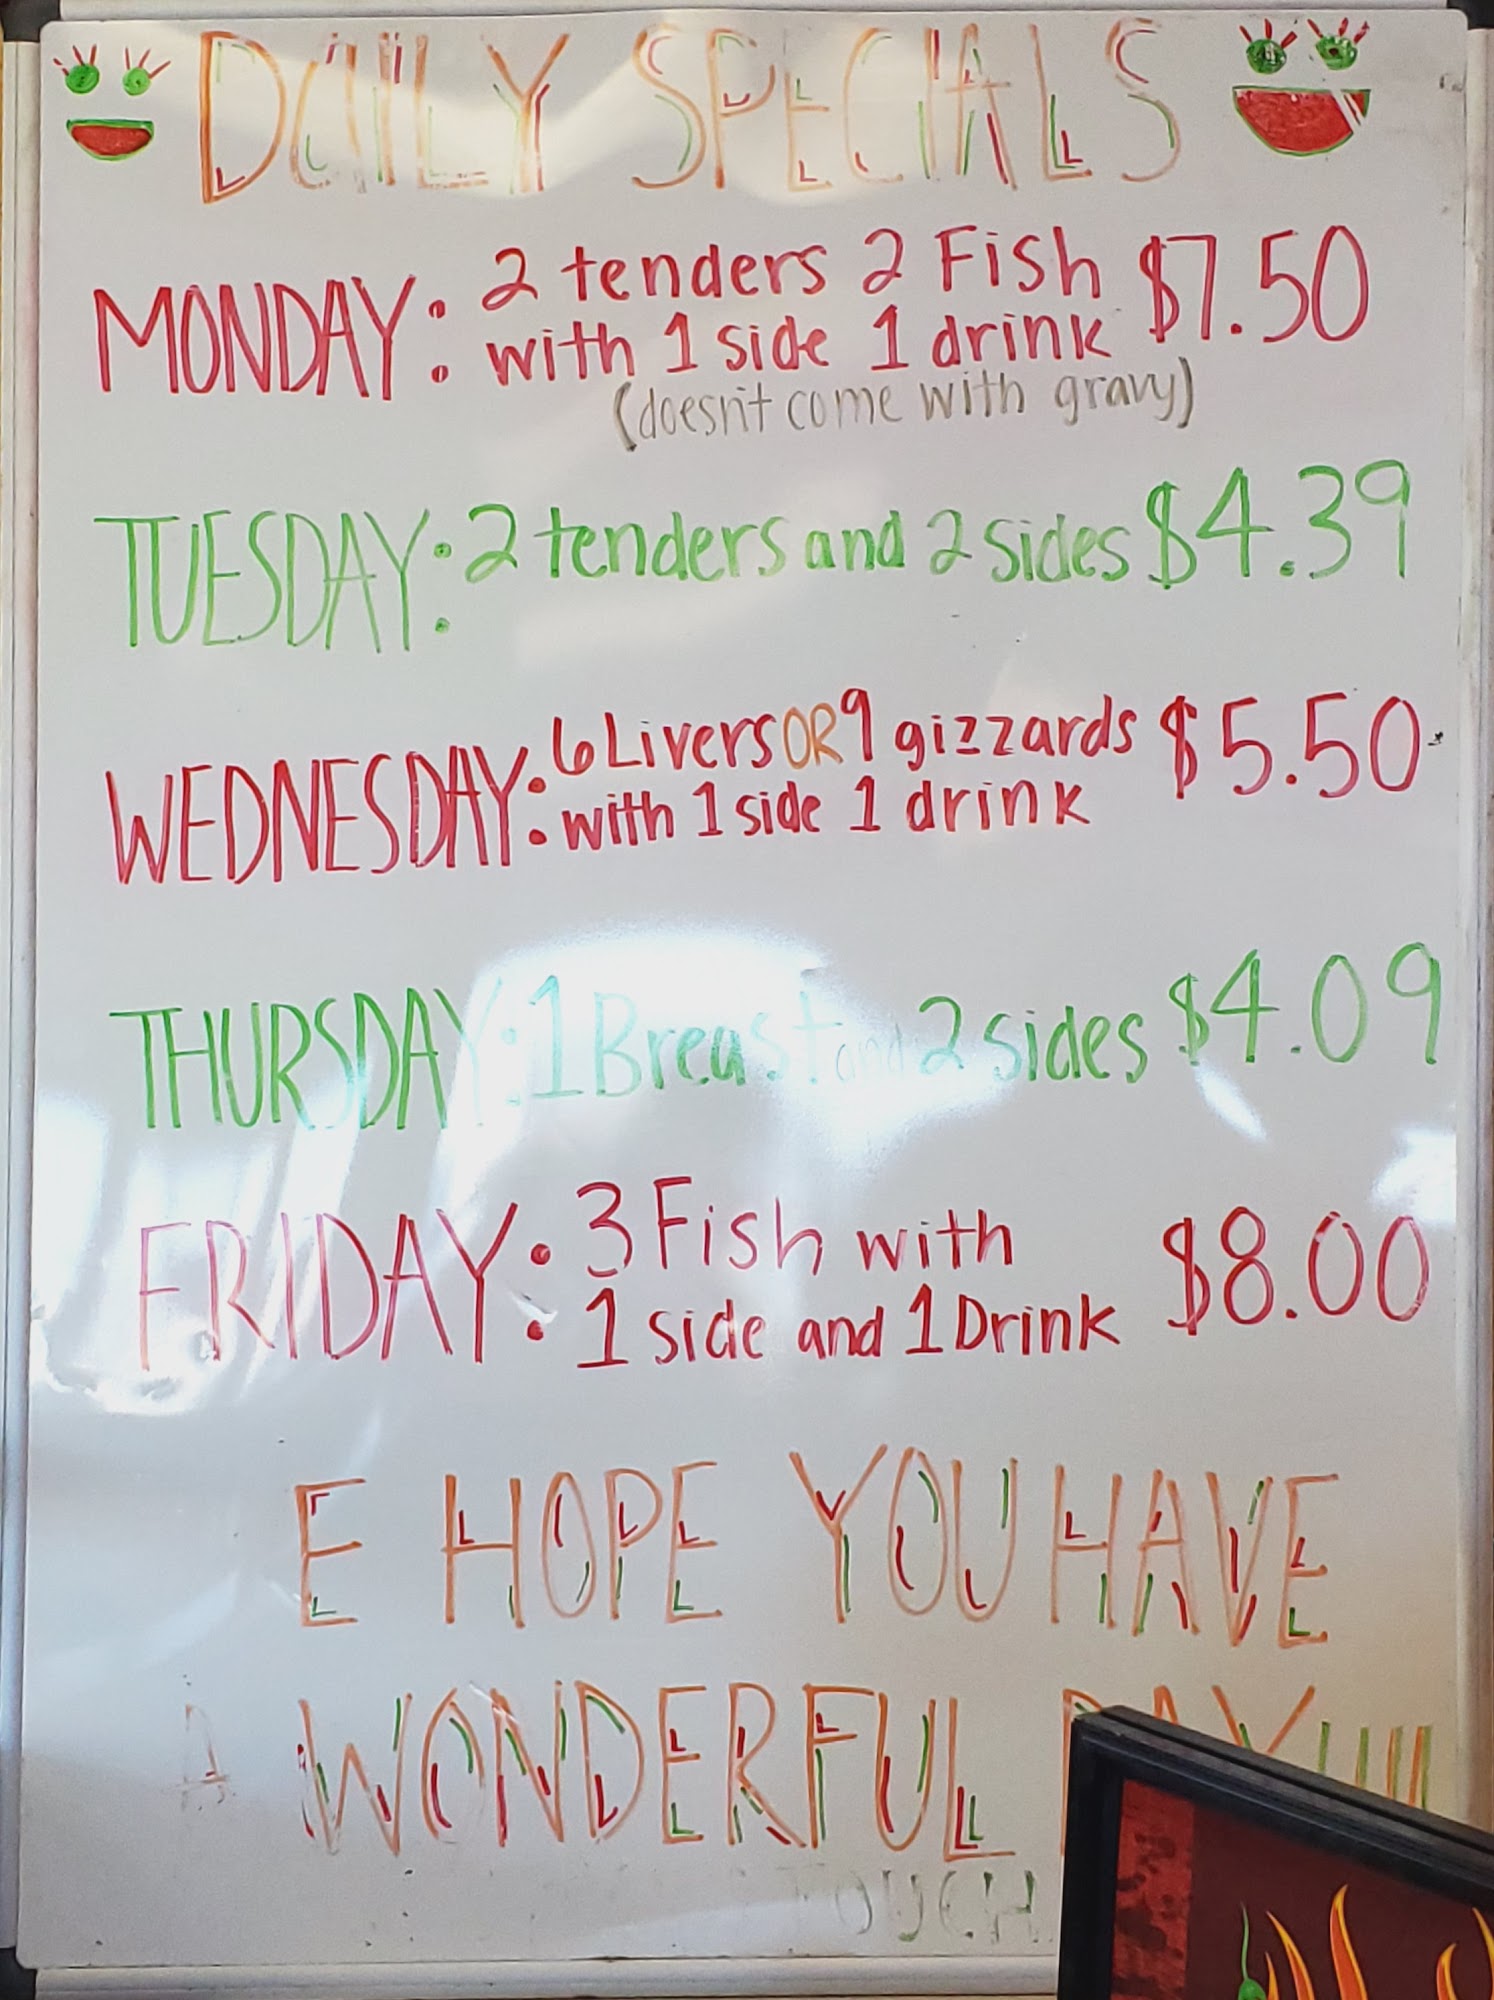 DAILY SPECIALS
MONDAY: 2 tenders 2 Fish $7.50
with 1 side 1 drink
(doesn't come with gravy)
TUESDAY: 2 tenders and 2 sides $4.39
WEDNESDAY: 6 Livers OR 9 gizzards $5.50
with 1 side 1 drink
THURSDAY: 1 Breast and 2 sides $4.09
FRIDAY: 3 Fish with $8.00
1 side and 1 Drink
E HOPE YOU HAVE
A WONDERFUL DAY!!!!
OUCH